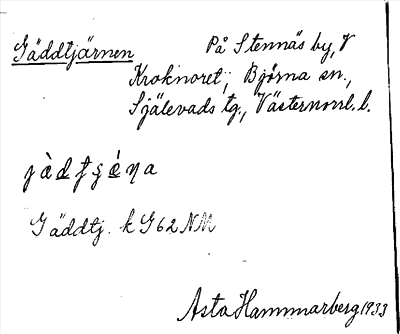 Gäddtjärnen På Stennäs by, V
Kroknoret, Björna sn.,
Själevads tg., Västernorrl. l.
Gäddtj. k G 62 NM
Asta Hammarberg 1933